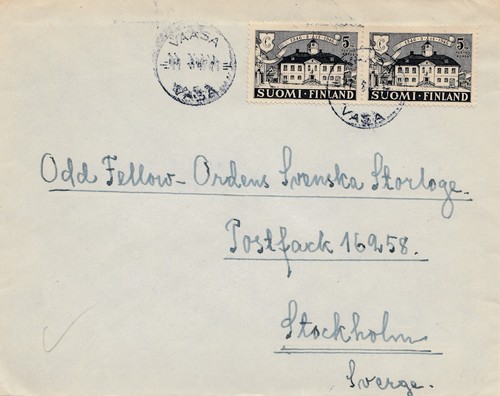 VAASA
VASA
1346 · 1946
5
SUOMI · FINLAND
5
SUOMI · FINLAND
VASA
Odd Fellow-Ordens Svenska Storloge.
Postfack 16258.
Stockholm
Sverge.